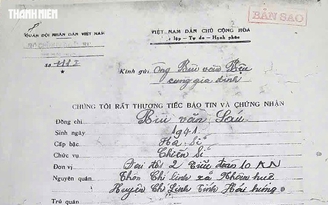 THANH NIÊN
BẢN SAO
QUÂN ĐỘI NHÂN DÂN VIỆT NAM
VIỆT NAM DÂN CHỦ CỘNG HÒA
lập - Tự do - Hạnh phúc
Số
Kính gửi: Ông Bùi văn
cùng gia đình
CHÚNG TÔI RẤT THƯƠNG TIẾC BÁO TIN VÀ CHỨNG NHẬN
Đồng chí Bùi văn Sau
Sinh ngày 1941
Cấp bậc Hạ Sĩ
Chức vụ Chiến Sĩ
Đơn vị 2 10 KN
Nguyên quán Thôn Chi linh xã Nhân huệ
Huyện Chí Linh Tỉnh Hải
Trú quán